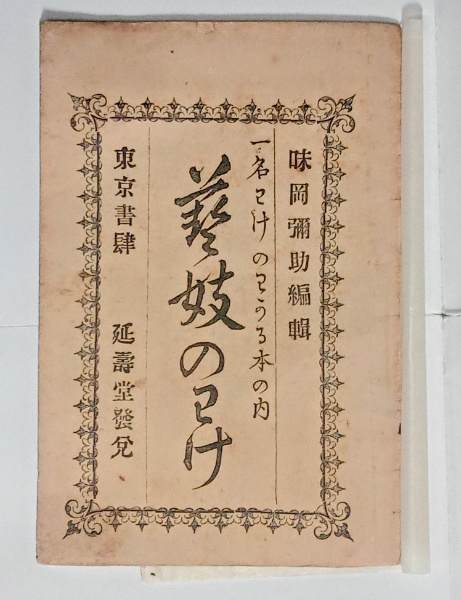 味岡彌助編輯
一名わけのわかる本の内
藝妓のわけ
東京書肆 延壽堂發兌